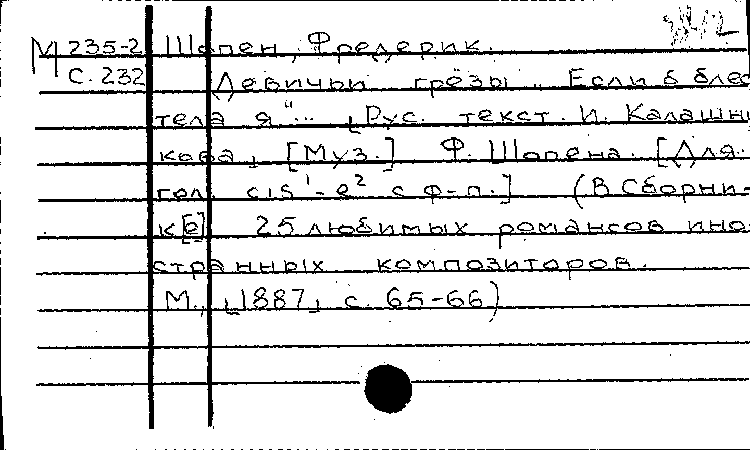 М 235-2 Шопен, Фредерик.
с. 232 Девичьи грёзы „ Если б блес
тела я "... [Рус. текст. И. Калашни
кова], [Муз.] Ф. Шопена. [Для.
гол. cis¹-e² с ф-п.] (В Сборни-
к[е] 25 любимых романсов ино-
странных композиторов.
М., [1887], с. 65-66)